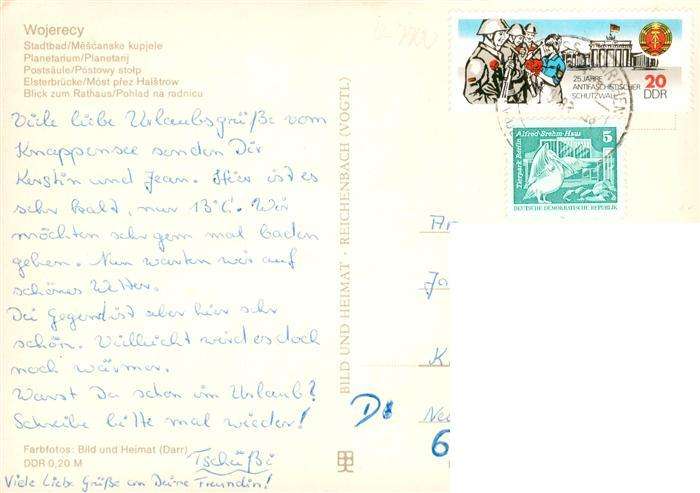 Wojerecy
Stadtbad/Měšćanske kupjele
Planetarium/Planetarij
Postsäule/Póstowy stołp
Elsterbrücke/Móst přez Halštrow
Blick zum Rathaus/Pohlad na radnicu
Viele liebe Urlaubsgrüße vom
Knappensee senden Dir
Kerstin und Jean. Hier ist es
sehr kalt, nur 13°C. Wir
möchten sehr gern mal baden
gehen. Nun warten wir auf
schönes Wetter.
Die Gegend ist aber hier sehr
schön. Vielleicht wird es doch
noch wärmer.
Warst Du schon im Urlaub?
Schreibe bitte mal wieder!
Tschüßi
Viele Liebe Grüße an Deine Freundin!
Farbfotos: Bild und Heimat (Darr)
DDR 0,20 M
BILD UND HEIMAT · REICHENBACH (VOGTL)
25 JAHRE
ANTIFASCHISTISCHER
SCHUTZWALL
20
DDR
Alfred-Brehm-Haus
Tierpark Berlin
5
DEUTSCHE DEMOKRATISCHE REPUBLIK
Ja
K
Ne
6